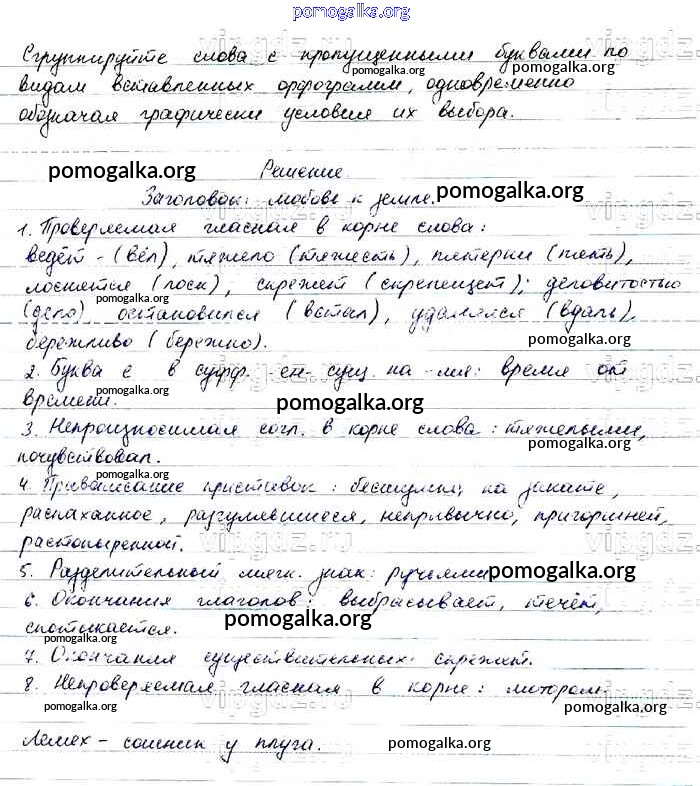 pomogalka.org
Сгруппируйте слова с пропущенными буквами по
pomogalka.org pomogalka.org
видам вставленных орфограмм, одновременно
обозначая графически условия их выбора.
pomogalka.org
Решение
Заголовок: любовь к земле. pomogalka.org
1. Проверяемая гласная в корне слова:
ведёт - (вёл), тяжело (тяжесть), пятерни (пять),
pomogalka.org pomogalka.org
лоснится (лоск), скрежет (скрепещет); деловитостью
pomogalka.org
(дело) остановился (встал), удалялся (вдаль),
pomogalka.org
бережливо (бережно).
2. Буква е в суфф. -ен- сущ. на -мя: время от
времени.
pomogalka.org
3. Непроизносимая согл. в корне слова: тяжелыми,
pomogalka.org
почувствовал.
pomogalka.org
4. Правописание приставок: бесшумно, на закате,
распаханное, разгулявшиеся, непривычно, пригоршней,
растопыренной.
5. Разделительный мягк. знак: ручьями pomogalka.org
6. Окончания глаголов: выбрасывает, течёт,
pomogalka.org
спотыкается.
pomogalka.org
7. Окончания существительных: скрежет.
8. Непроверяемая гласная в корне: мотором.
pomogalka.org pomogalka.org pomogalka.org
Лемех - сошник у плуга. pomogalka.org